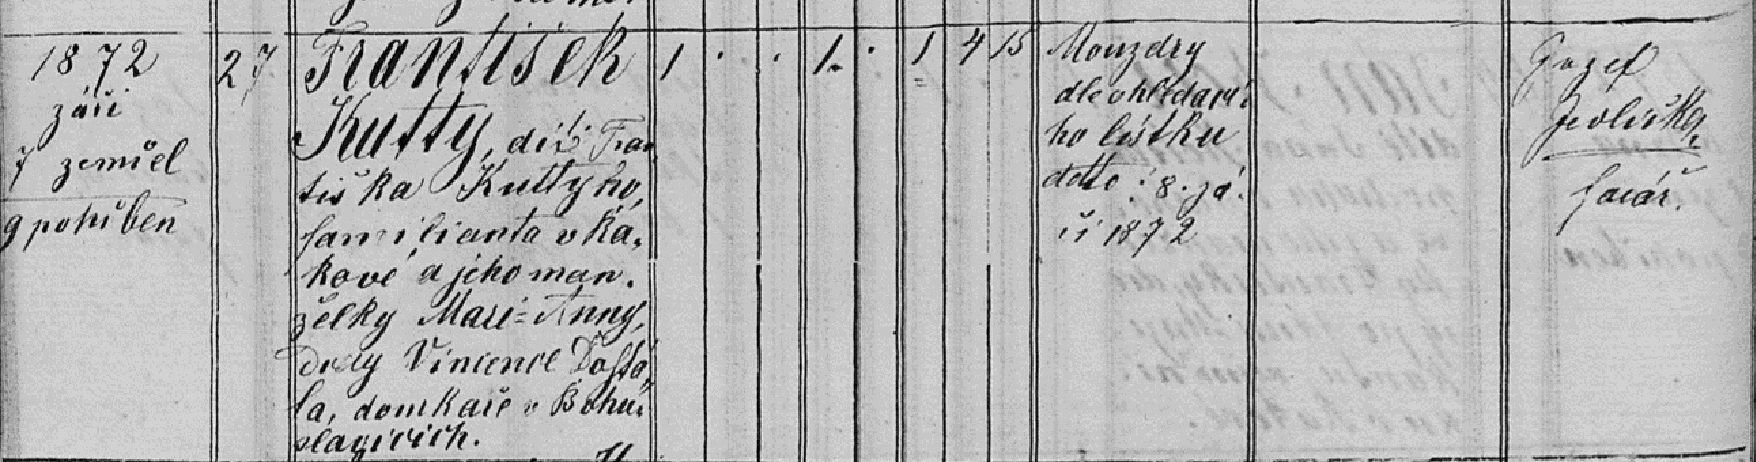 1872
září
7 zemřel
9 pohřben
27
František
Kutty, dítě Fran
tiška Kuttyho,
familianta v Ka,
kově a jeho man.
želky Marie Anny,
dcery Vincence Dossá,
la, domkaře v Bohu,
slavicích.
1 . . 1. . 1 4 15
Mouzdry
dle ohledací,
ho lístku
dtto : 8. zá,
ří 1872
Jozef
farář.